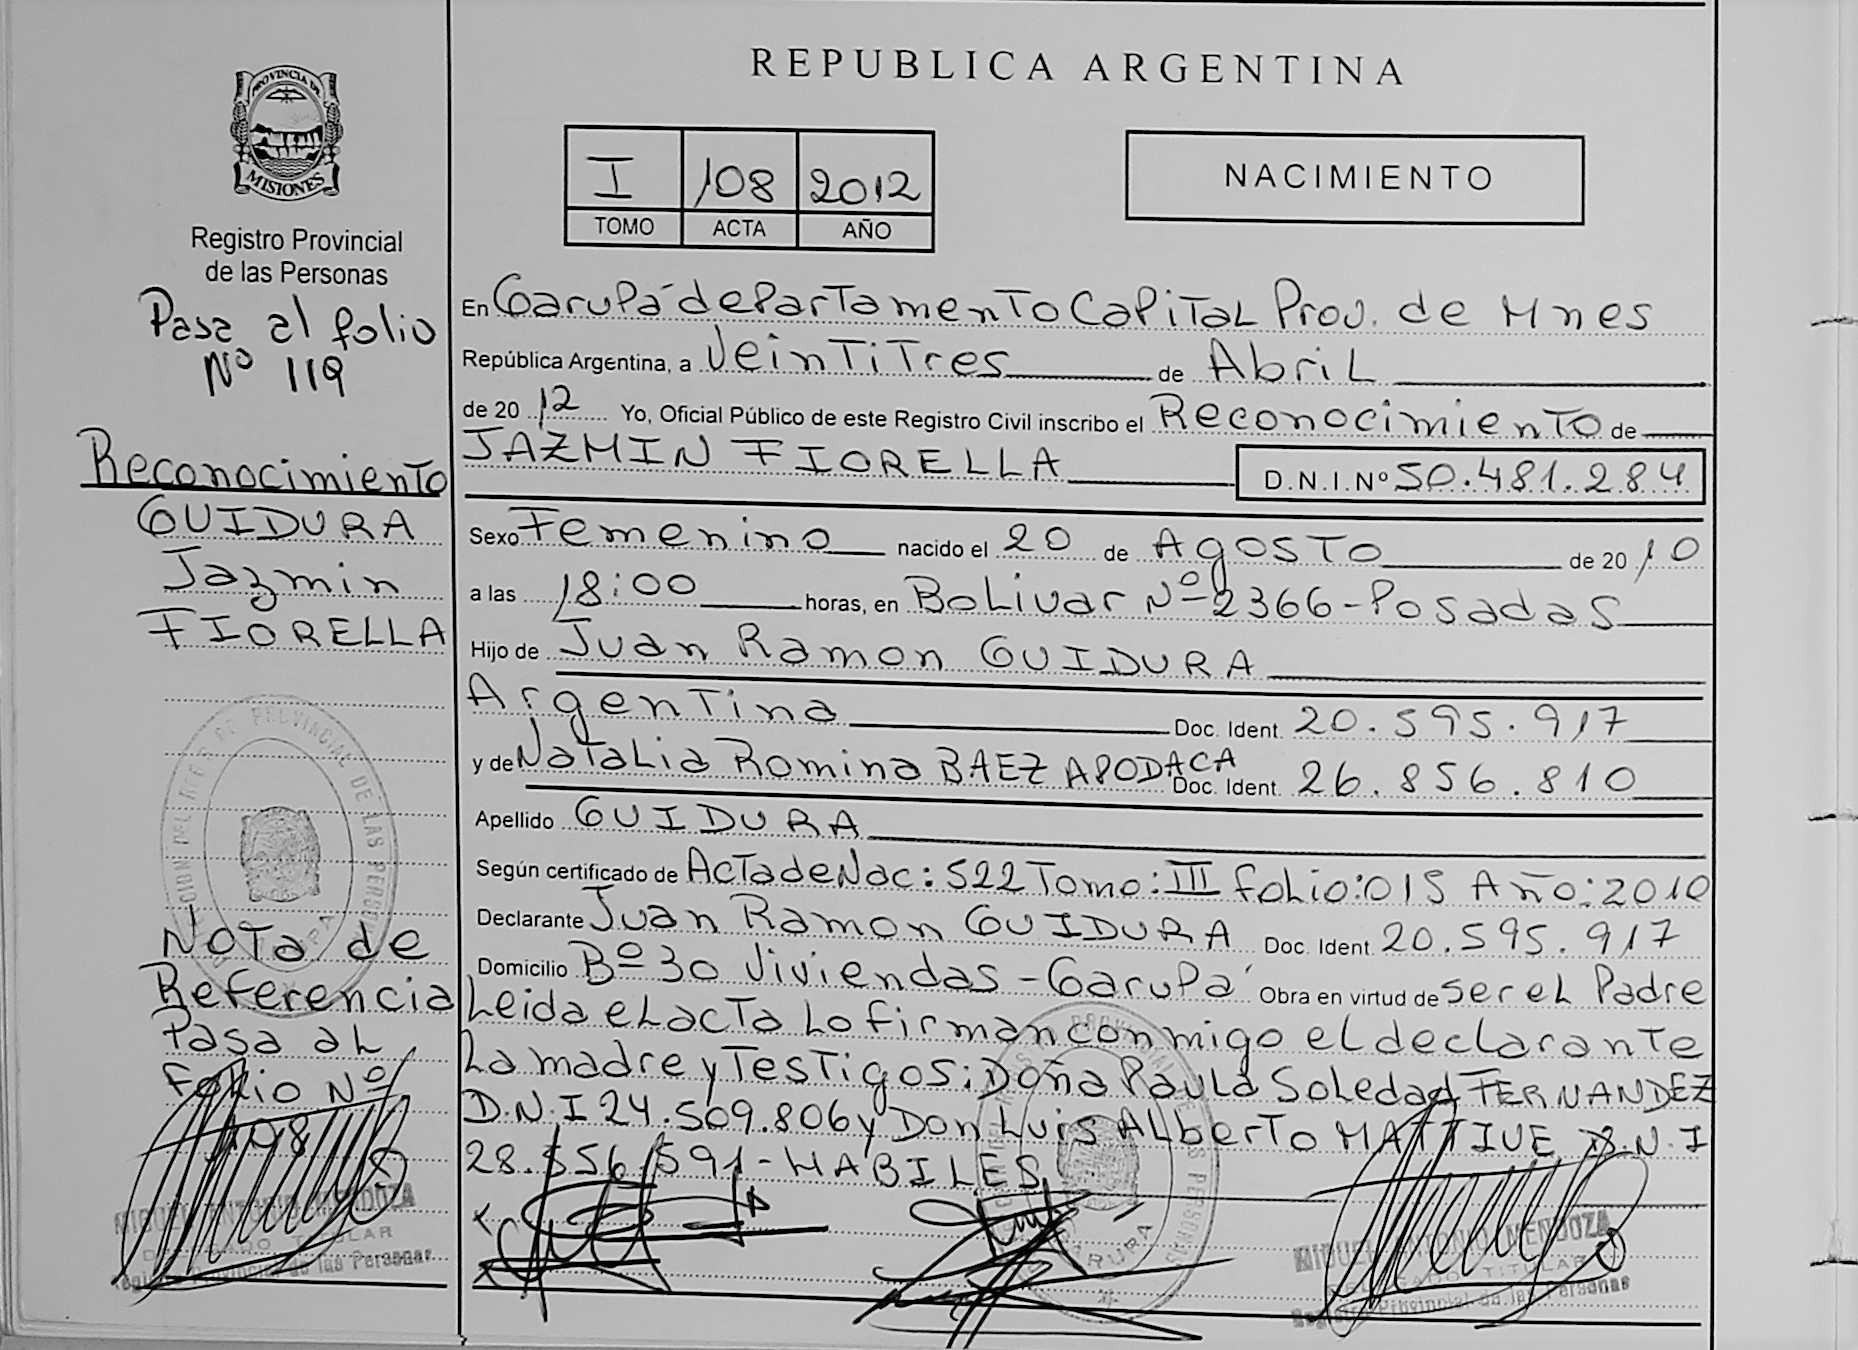 PROVINCIA DE
MISIONES
Registro Provincial
de las Personas
Pasa al folio
Nº 119
Reconocimiento
GUIDURA
Jazmin
FIORELLA
NOTA de
Referencia
Pasa aL
Folio Nº
198
MIGUEL ANTONIO MENDOZA
DELEGADO TITULAR
Registro Provincial de las Personas
REPUBLICA ARGENTINA
I 108 2012
TOMO ACTA AÑO
NACIMIENTO
En Garupá departamento Capital Prov. de Mnes
República Argentina, a Veintitres de Abril
de 2012 Yo, Oficial Público de este Registro Civil inscribo el Reconocimiento de
JAZMIN FIORELLA D.N.I.Nº 50.481.284
Sexo Femenino nacido el 20 de Agosto de 2010
a las 18:00 horas, en Bolivar Nº 2366-Posadas
Hijo de Juan Ramon GUIDURA
Argentina Doc. Ident. 20.595.917
y de Natalia Romina BAEZ APODACA Doc. Ident. 26.856.810
Apellido GUIDURA
Según certificado de Acta de Nac: 522 Tomo: III folio: 015 Año: 2010
Declarante Juan Ramon GUIDURA Doc. Ident. 20.595.917
Domicilio Bº 30 Viviendas - Garupá Obra en virtud de ser el Padre
Leida el acta lo firman conmigo el declarante
La madre y Testigos: Doña Paula Soledad FERNANDEZ
D.N.I 24.509.806 y Don Luis Alberto MATTIVE D.N.I
28.556.591 - HABILES
MIGUEL ANTONIO MENDOZA
DELEGADO TITULAR
Registro Provincial de las Personas